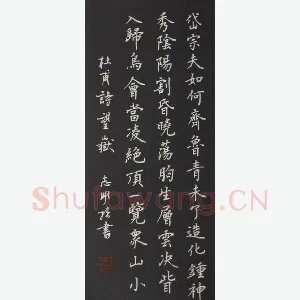 岱宗夫如何齊魯青未了造化鍾神
秀陰陽割昏曉蕩胸生層雲決眥
入歸鳥會當凌絕頂一覽衆山小
杜甫詩望嶽 志 書
Shufawang.CN